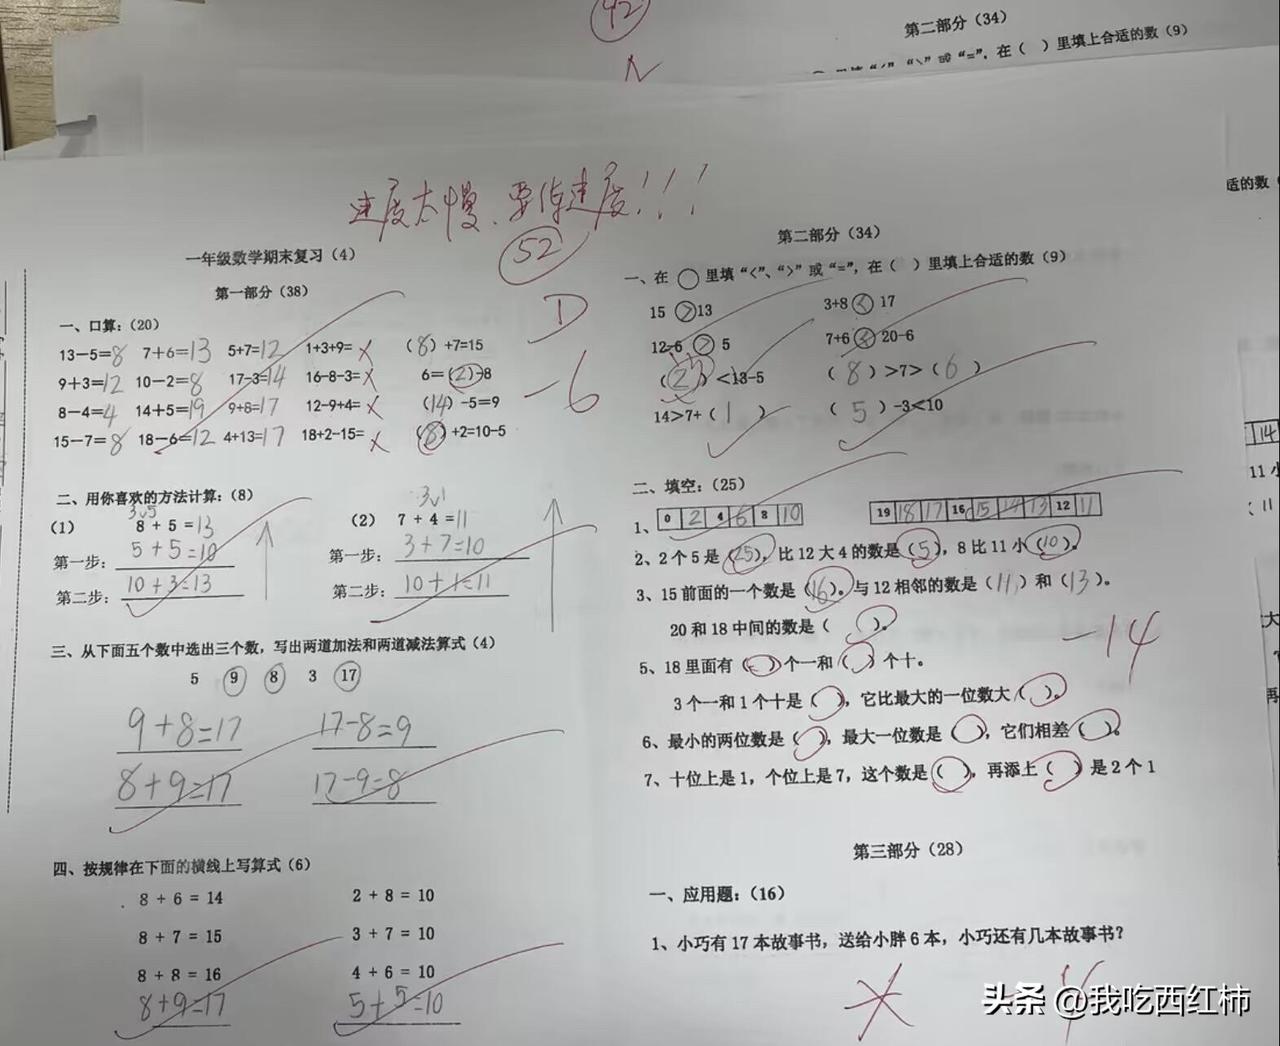 42
第二部分（34）
里填上合适的数（9）
适的数（
速度太慢、要练速度！！！
52
D
-6
一年级数学期末复习（4）
第一部分（38）
一、口算：（20）
13－5=8 7＋6=13 5+7=12 1+3+9= （8）+7=15
9＋3=12 10－2=8 17-3=14 16-8-3= 6=（2）-8
8－4=4 14＋5=19 9+8=17 12-9+4= （14）-5=9
15－7=8 18－6=12 4+13=17 18+2-15= （8）+2=10-5
二、用你喜欢的方法计算：（8）
（1） 8 + 5 =13 （2） 7 + 4 =11
第一步：5+5=10 第一步：3+7=10
第二步：10+3=13 第二步：10+1=11
三、从下面五个数中选出三个数，写出两道加法和两道减法算式（4）
5 9 8 3 17
9+8=17 17-8=9
8+9=17 17-9=8
四、按规律在下面的横线上写算式（6）
8 + 6 = 14 2 + 8 = 10
8 + 7 = 15 3 + 7 = 10
8 + 8 = 16 4 + 6 = 10
8+9=17 5+5=10
第二部分（34）
一、在 ○ 里填“<”、“>”或“=”，在（ ）里填上合适的数（9）
15 > 13 3+8 < 17
12-6 > 5 7+6 < 20-6
（ ）<13-5 （8）>7>（6）
14>7+（1） （5）-3<10
二、填空：（25）
1、 0 2 4 6 8 10 19 18 17 16 15 14 13 12 11
2、2个5是（25），比12大4的数是（5），8比11小（10）。
3、15前面的一个数是（16）。与12相邻的数是（11）和（13）。
20和18中间的数是（ ）。
-14
5、18里面有（ ）个一和（ ）个十。
3个一和1个十是（ ），它比最大的一位数大（ ）。
6、最小的两位数是（ ），最大一位数是（ ），它们相差（ ）。
7、十位上是1，个位上是7，这个数是（ ），再添上（ ）是2个1
第三部分（28）
一、应用题：（16）
1、小巧有17本故事书，送给小胖6本，小巧还有几本故事书？
头条 @我吃西红柿